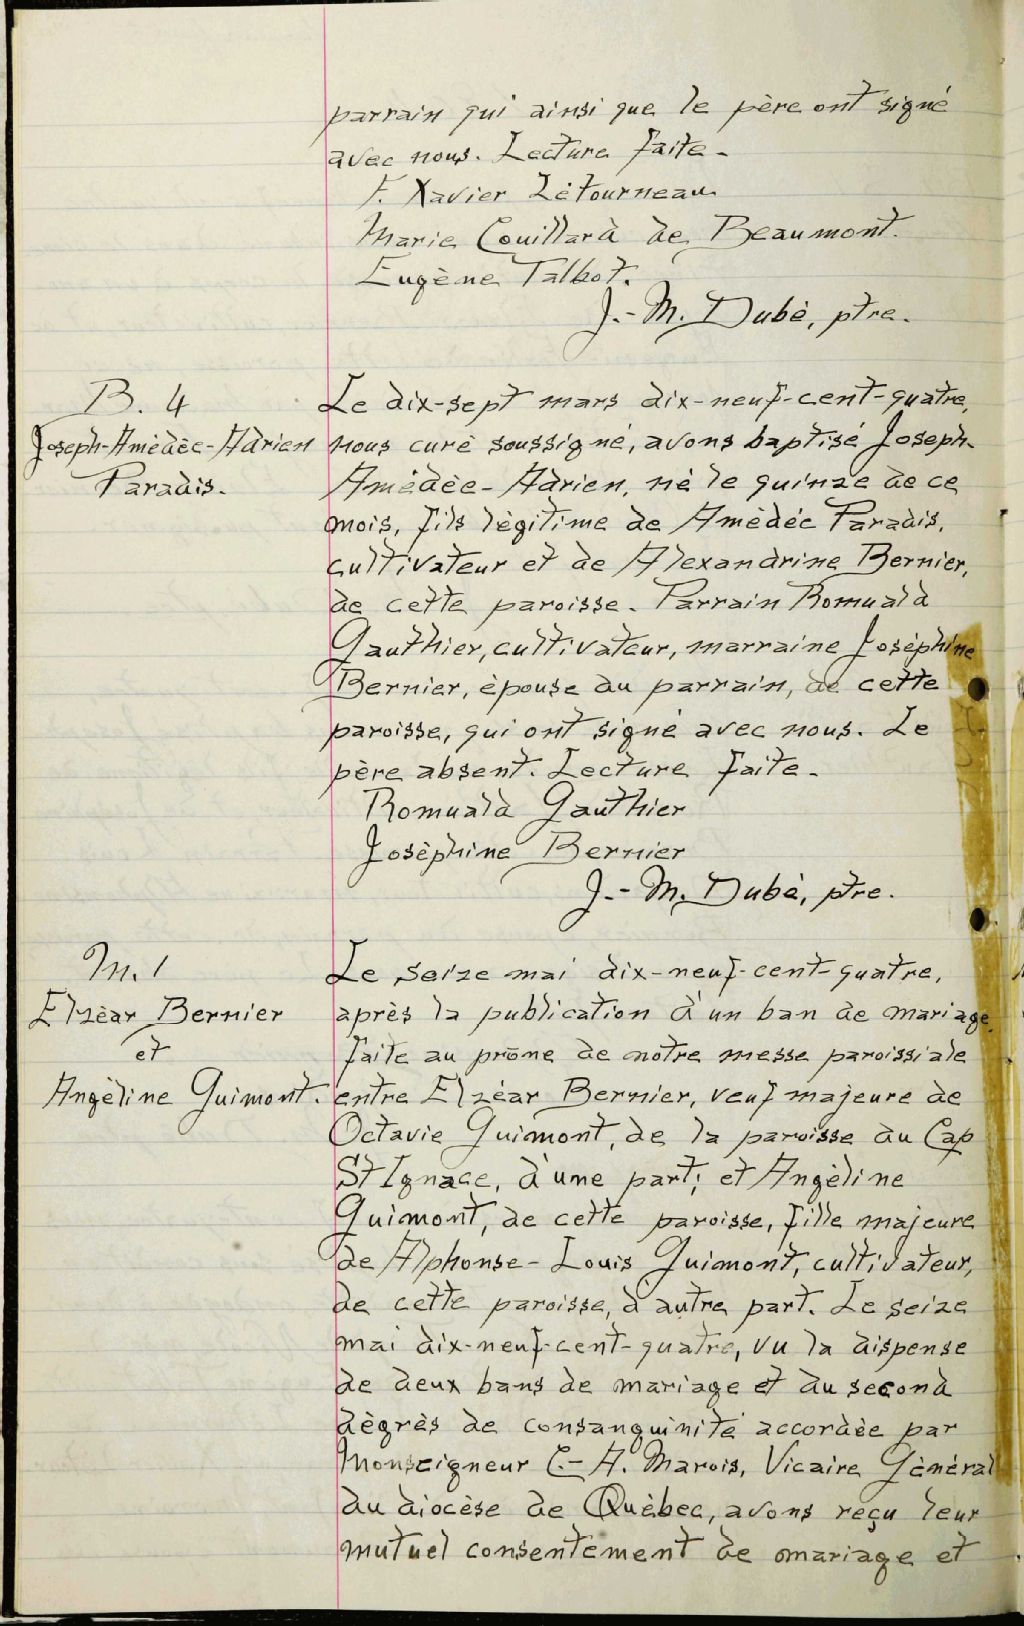 parrain qui ainsi que le père ont signé
avec nous. Lecture faite.
F. Xavier Létourneau
Marie Couillard de Beaumont.
Eugène Talbot.
J.-M. Dubé, ptre.
B. 4
Joseph-Amédée-Adrien
Paradis.
Le dix-sept mars dix-neuf-cent-quatre,
nous curé soussigné, avons baptisé Joseph-
Amédée-Adrien, né le quinze de ce
mois, fils légitime de Amédée Paradis,
cultivateur et de Alexandrine Bernier,
de cette paroisse. Parrain Romuald
Gauthier, cultivateur, marraine Joséphine
Bernier, épouse du parrain, de cette
paroisse, qui ont signé avec nous. Le
père absent. Lecture faite.
Romuald Gauthier
Joséphine Bernier
J.-M. Dubé, ptre.
M. 1
Elzéar Bernier
et
Angéline Guimont.
Le seize mai dix-neuf-cent-quatre,
après la publication d'un ban de mariage,
faite au prône de notre messe paroissiale
entre Elzéar Bernier, veuf majeure de
Octavie Guimont, de la paroisse du Cap
St Ignace, d'une part; et Angéline
Guimont, de cette paroisse, fille majeure
de Alphonse-Louis Guimont, cultivateur,
de cette paroisse, d'autre part. Le seize
mai dix-neuf-cent-quatre, vu la dispense
de deux bans de mariage et du second
dégrès de consanguinité accordée par
Monseigneur C.-A. Marois, Vicaire Général
du diocèse de Québec, avons reçu leur
mutuel consentement de mariage et